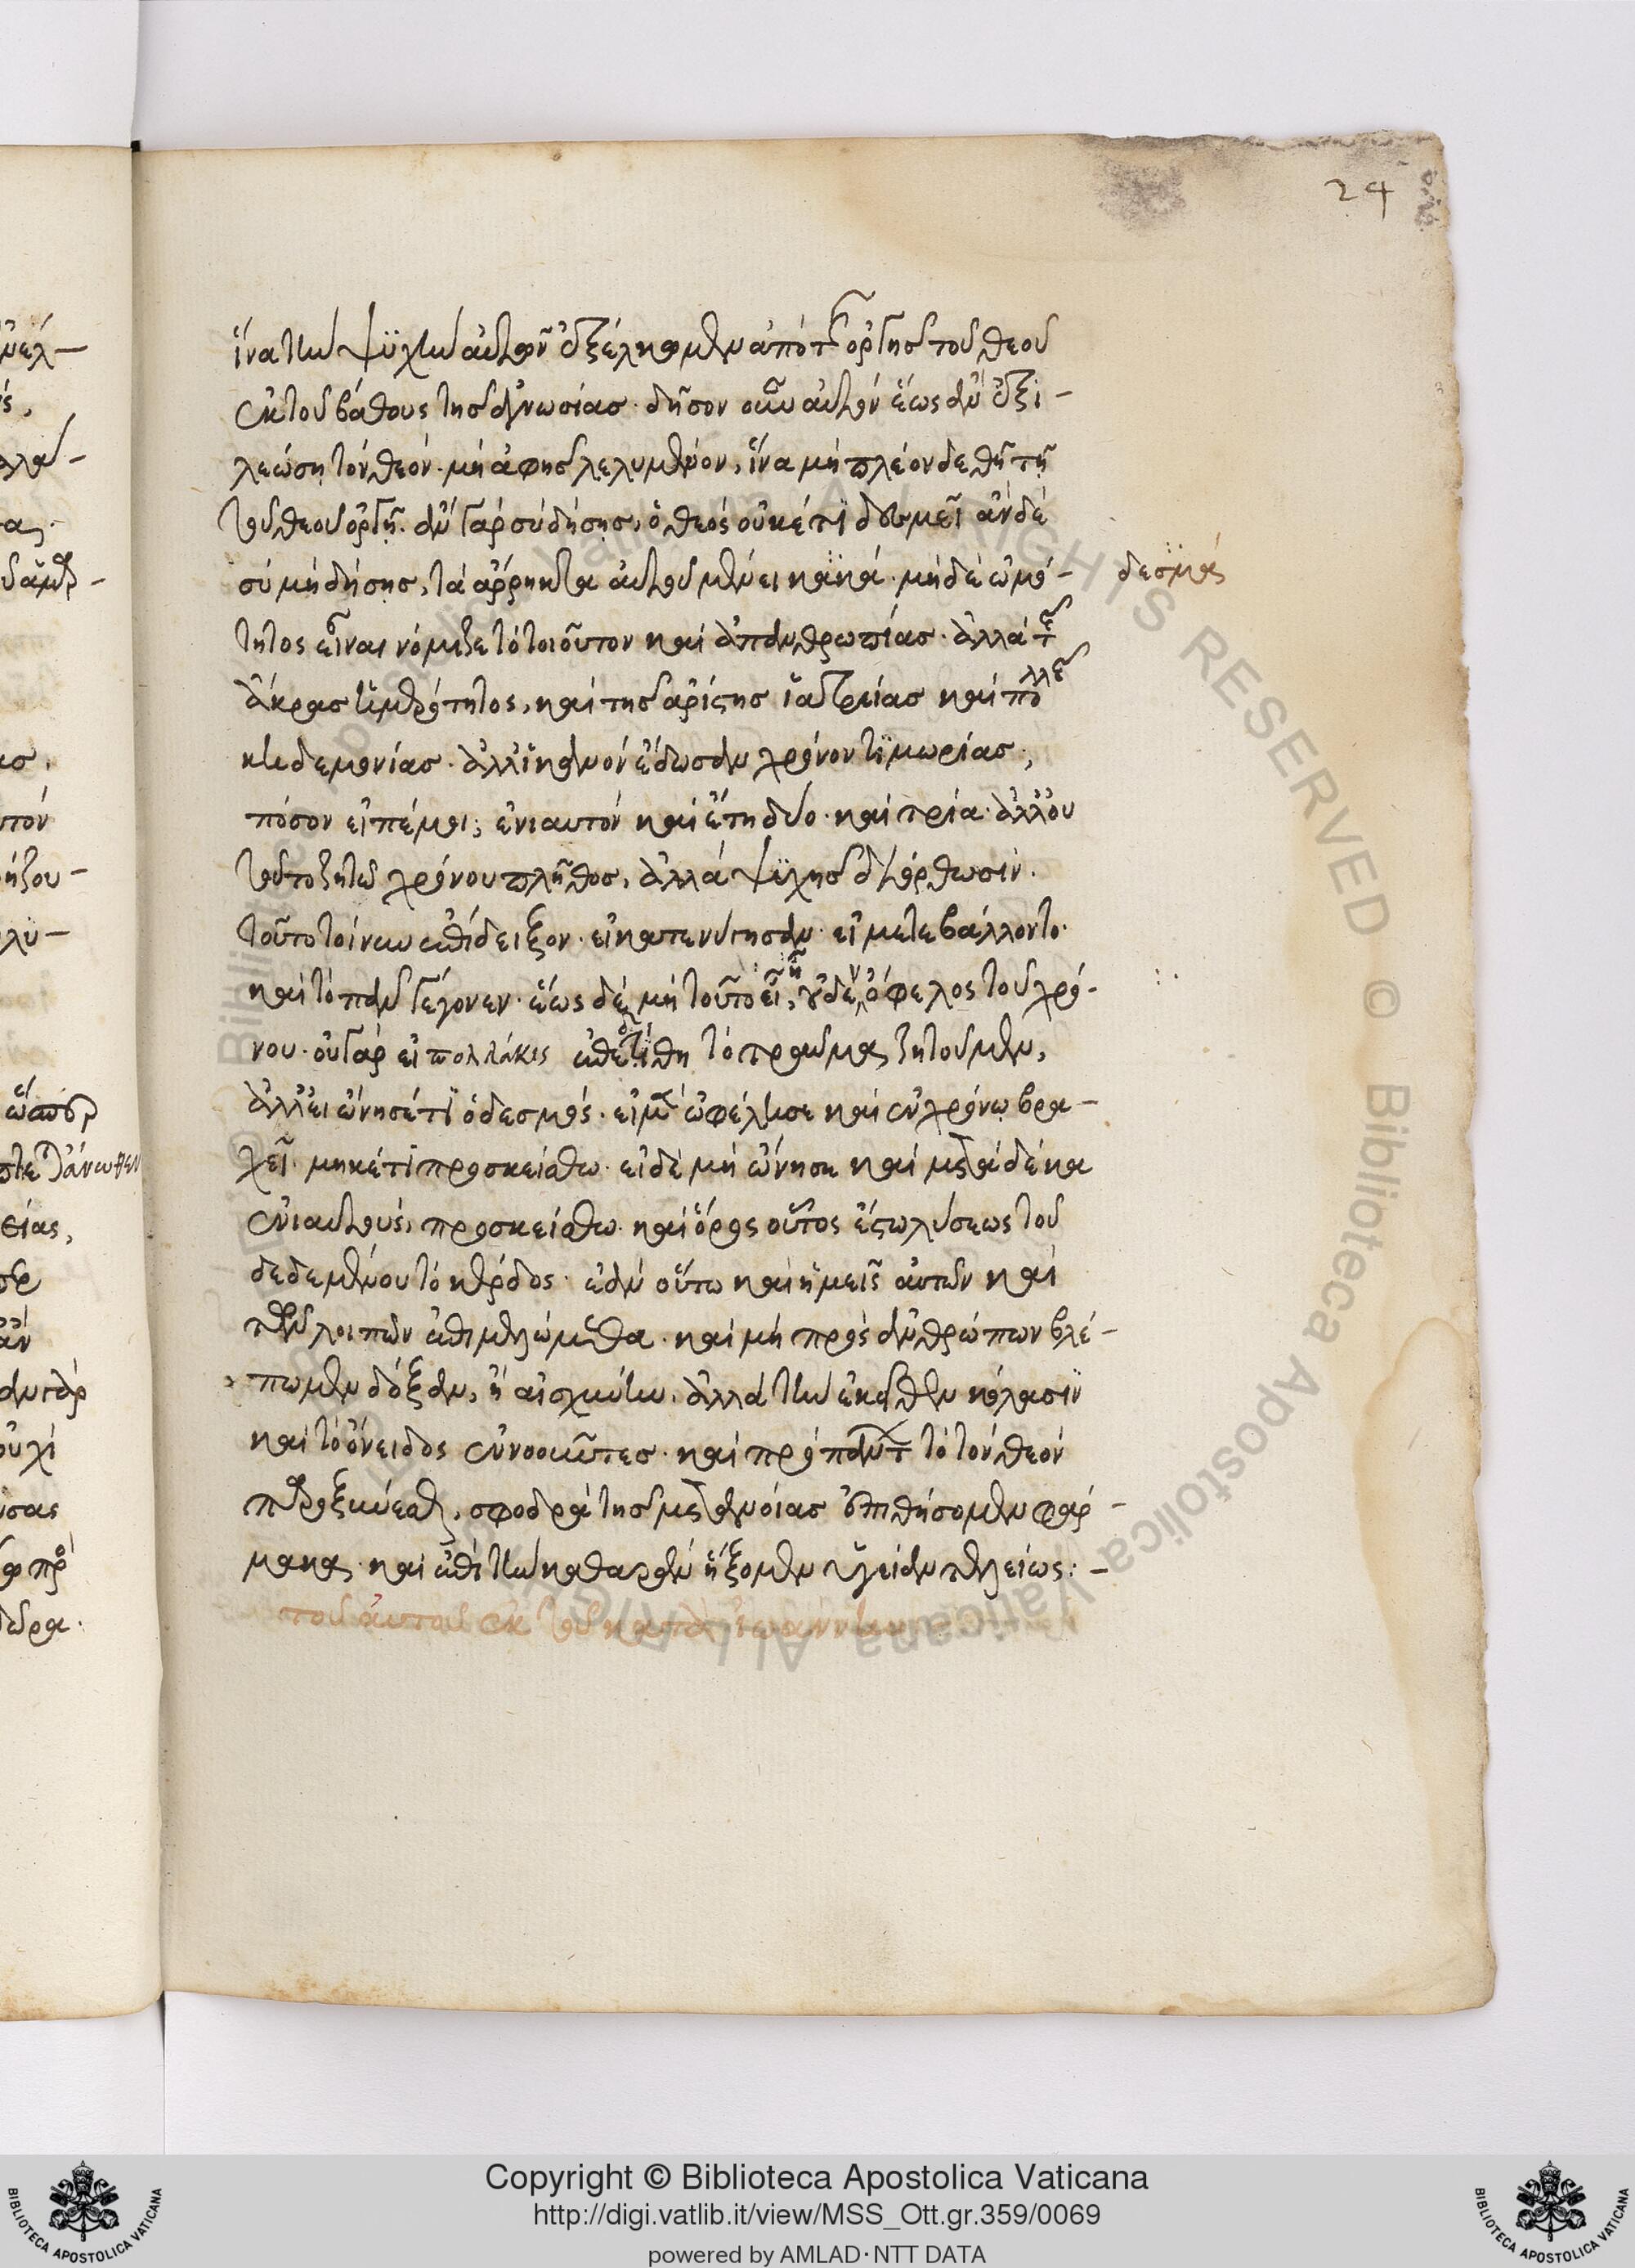 24
ἵνα τὴν ψυχὴν αὐτῶν ἐξέλωμεν ἀπὸ τῆς ὀργῆς τοῦ θεοῦ
ἐκ τοῦ βάθους τῆς ἀγνωσίας. δῆσον οὖν αὐτὸν ἕως ἂν ἐξι-
λεώση τὸν θεόν. μὴ ἀφῆς λελυμένον, ἵνα μὴ πλέον δεθῆ τῆ
τοῦ θεοῦ ὀργῆ. ἂν γὰρ σὺ δήσης, ὁ θεὸς οὐκέτι δεσμεῖ ἂν δὲ
σὺ μὴ δήσης, τὰ ἄρρηκτα αὐτὸν μένει κακά. μὴ δὲ ὠμό-
δεσμά
τητος εἶναι νόμιζε τὸ τοιοῦτον καὶ ἀπανθρωπίας. ἀλλὰ τῆς
ἄκρας ἡμερότητος, καὶ τῆς ἀρίστης ἰατρείας καὶ πολλῆς
κηδεμονίας. ἀλλ' ἱκανὸν ἔδωσαν χρόνον τιμωρίας,
πόσον εἰπέ μοι; ἐνιαυτὸν καὶ ἔτη δύο. καὶ τρία. ἀλλ' οὐ
τοῦτο ζητῶ χρόνου πλῆθος, ἀλλὰ ψυχῆς διόρθωσιν.
τοῦτο τοίνυν ἐπίδειξον. εἰ κατενύγησαν. εἰ μετεβάλλοντο.
καὶ τὸ πᾶν γέγονεν. ἕως δὲ μὴ τοῦτο εἴη, οὐδὲν ὄφελος τοῦ χρό-
νου. οὐ γὰρ εἰ πολλάκις ἐπετέθη τὸ τραῦμα ζητοῦμεν,
ἀλλ' εἰ ὤνησέ τι ὁ δεσμός. εἰ μὲν ὠφέλησε καὶ ἐν χρόνω βρα-
χεῖ. μηκέτι προσκείσθω. εἰ δὲ μὴ ὤνησε καὶ μετὰ δέκα
ἐνιαυτούς, προσκείσθω. καὶ ὅρος οὗτος ἔστω λύσεως τοῦ
δεδεμένου τὸ κέρδος. ἐὰν οὕτω καὶ ἡμεῖς αὐτῶν καὶ
τῶν λοιπῶν ἐπιμελώμεθα. καὶ μὴ πρὸς ἀνθρώπων βλέ-
πωμεν δόξαν, ἢ αἰσχύνην. ἀλλὰ τὴν ἐκεῖθεν κόλασιν
καὶ τὸ ὄνειδος ἐννοοῦντες. καὶ πρὸ πάντων τὸ τὸν θεὸν
παροξύνεσθαι, σφοδρὰ τῆς μετανοίας ἐπιθήσομεν φάρ-
μακα. καὶ ἐπὶ τὴν καθαρὰν ἥξομεν ὑγείαν τελείως:-
τοῦ αὐτοῦ ἐκ τοῦ κατὰ ἰωάννην
Copyright © Biblioteca Apostolica Vaticana
http://digi.vatlib.it/view/MSS_Ott.gr.359/0069
powered by AMLAD·NTT DATA
BIBLIOTECA APOSTOLICA VATICANA
BIBLIOTECA APOSTOLICA VATICANA